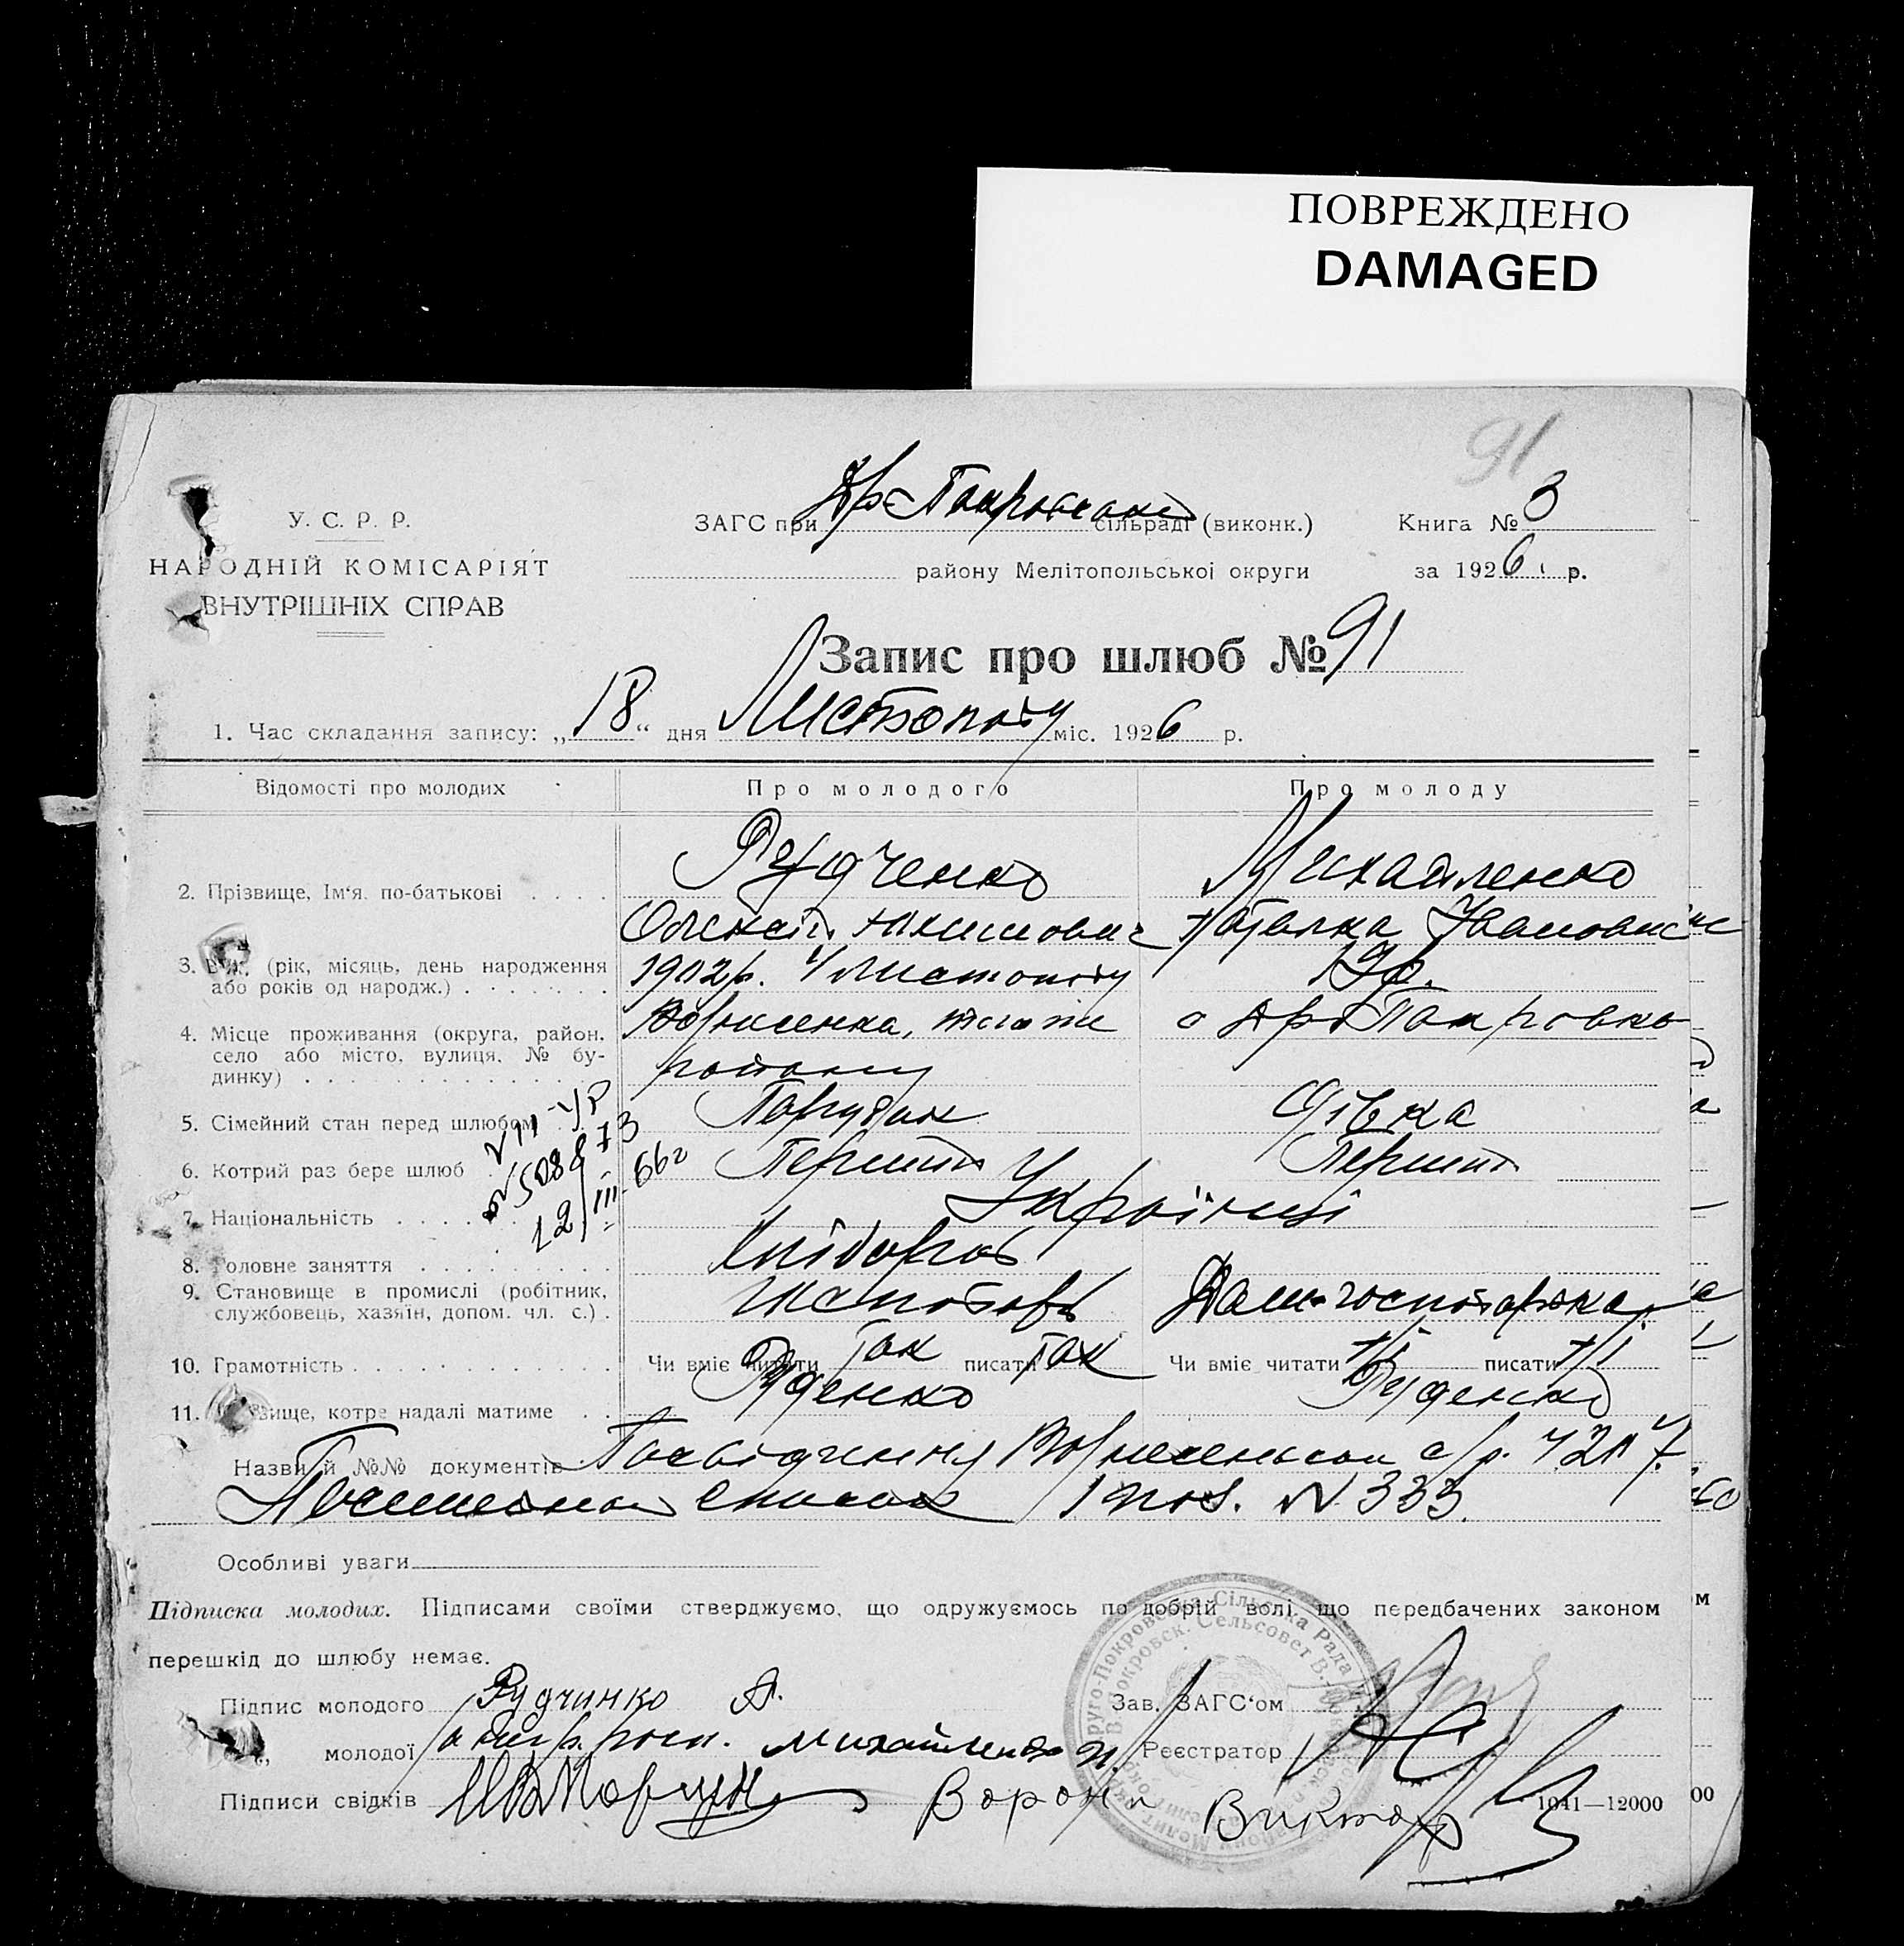 ПОВРЕЖДЕНО
DAMAGED
91
У. С. Р. Р.
НАРОДНІЙ КОМІСАРІЯТ
ВНУТРІШНІХ СПРАВ
ЗАГС при Др-Покровскої сільраді (виконк.)
району Мелітопольської округи
Книга № 3
за 1926 р.
Запис про шлюб № 91
1. Час складання запису: „18“ дня Листопаду міс. 1926 р.
Відомості про молодих Про молодого Про молоду
2. Прізвище, Ім'я, по-батькові Рудченко Михайленко
Олексій Якимович Наталка Івановна
3. Вік, (рік, місяць, день народження 1902р. 4 листопаду 19р.
або років од народж.)
4. Місце проживання (округа, район, Вознесенка, того же с Др-Покровка
село або місто, вулиця, № бу- району
динку)
5. Сімейний стан перед шлюбом Парубок Дівка
VII-УР
№ 508873
12/III-66г
6. Котрий раз бере шлюб Перший Перший
7. Національність Українці
8. Головне заняття Хлібороб
9. Становище в промислі (робітник, Господарь Дом-господарка
службовець, хазяїн, допом. чл. с.)
10. Грамотність Чи вміє читати Так писати Так Чи вміє читати н/і писати н/і
11. Прізвище, котре надалі матиме Руденко Руденко
Назви й №№ документів Посвідчення Вознесенськой с/р. 4207
списан 1 №. 333.
Особливі уваги
Підписка молодих. Підписами своїми стверджуємо, що одружуємось по добрій волі що передбачених законом
перешкід до шлюбу немає.
Підпис молодого Рудчинко А.
Зав. ЗАГС'ом
„ молодої михайленко н.
Реєстратор
Підписи свідків Ворона Виктор
1041—12000
Друго-Покровська Сільська Рада
В. Покровск. Сельсовет